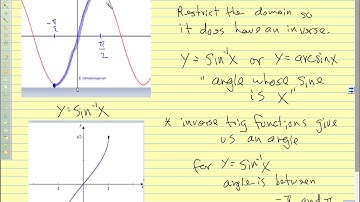 Restrict the domain so
it does have an inverse.
y = sin⁻¹x or y = arcsin x
"angle whose sine
is x"
* inverse trig functions give
us an angle
for y = sin⁻¹x
angle is between
-π/2 and π
-π/2
π/2
y = sin⁻¹x